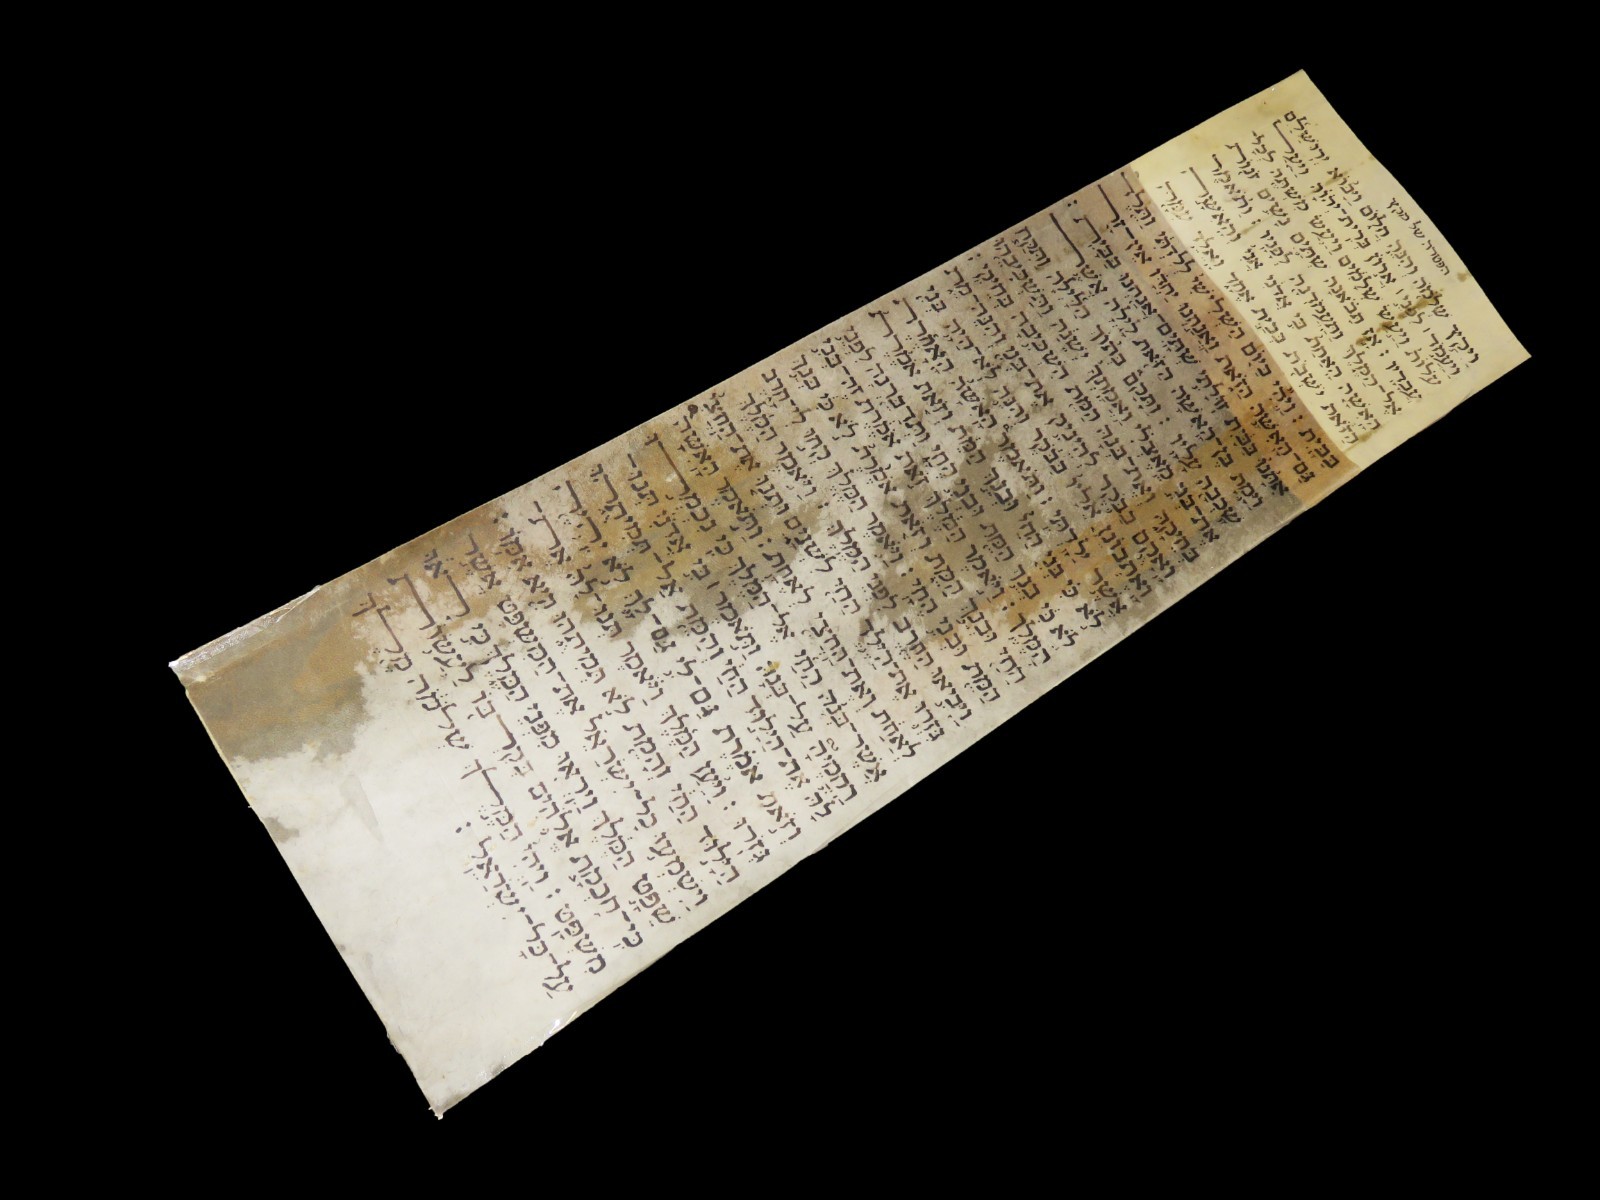 הפטרה של מקץ
וַיִּקַץ שְׁלֹמֹה וְהִנֵּה חֲלוֹם וַיָּבוֹא יְרוּשָׁלִַם
וַיַּעֲמֹד לִפְנֵי אֲרוֹן בְּרִית־יְהוָה וַיַּעַל
עֹלוֹת וַיַּעַשׂ שְׁלָמִים וַיַּעַשׂ מִשְׁתֶּה לְכָל־
עֲבָדָיו : אָז תָּבֹאנָה שְׁתַּיִם נָשִׁים זֹנוֹת
אֶל־הַמֶּלֶךְ וַתַּעֲמֹדְנָה לְפָנָיו : וַתֹּאמֶר
הָאִשָּׁה הָאַחַת בִּי אֲדֹנִי אֲנִי וְהָאִשָּׁה
הַזֹּאת יֹשְׁבֹת בְּבַיִת אֶחָד וָאֵלֵד עִמָּהּ
בַּבָּיִת : וַיְהִי בַּיּוֹם הַשְּׁלִישִׁי לְלִדְתִּי וַתֵּלֶד
גַּם־הָאִשָּׁה הַזֹּאת וַאֲנַחְנוּ יַחְדָּו אֵין־זָר
אִתָּנוּ בַּבַּיִת זוּלָתִי שְׁתַּיִם אֲנַחְנוּ בַּבָּיִת :
וַיָּמָת בֶּן־הָאִשָּׁה הַזֹּאת לָיְלָה אֲשֶׁר
שָׁכְבָה עָלָיו : וַתָּקָם בְּתוֹךְ הַלַּיְלָה וַתִּקַּח
אֶת־בְּנִי מֵאֶצְלִי וַאֲמָתְךָ יְשֵׁנָה וַתַּשְׁכִּיבֵהוּ
בְּחֵיקָהּ וְאֶת־בְּנָהּ הַמֵּת הִשְׁכִּיבָה בְחֵיקִי :
וָאָקֻם בַּבֹּקֶר לְהֵינִיק אֶת־בְּנִי וְהִנֵּה־מֵת
וָאֶתְבּוֹנֵן אֵלָיו בַּבֹּקֶר וְהִנֵּה לֹא־הָיָה בְנִי
אֲשֶׁר יָלָדְתִּי : וַתֹּאמֶר הָאִשָּׁה הָאַחֶרֶת
לֹא כִי בְּנִי הַחַי וּבְנֵךְ הַמֵּת וְזֹאת אֹמֶרֶת
לֹא כִי בְּנֵךְ הַמֵּת וּבְנִי הֶחָי וַתְּדַבֵּרְנָה לִפְנֵי
הַמֶּלֶךְ : וַיֹּאמֶר הַמֶּלֶךְ זֹאת אֹמֶרֶת זֶה־בְּנִי
הַחַי וּבְנֵךְ הַמֵּת וְזֹאת אֹמֶרֶת לֹא כִי בְּנֵךְ
הַמֵּת וּבְנִי הֶחָי : וַיֹּאמֶר הַמֶּלֶךְ קְחוּ לִי־חָרֶב
וַיָּבִאוּ הַחֶרֶב לִפְנֵי הַמֶּלֶךְ : וַיֹּאמֶר הַמֶּלֶךְ
גִּזְרוּ אֶת־הַיֶּלֶד הַחַי לִשְׁנָיִם וּתְנוּ אֶת־הַחֲצִי
לְאַחַת וְאֶת־הַחֲצִי לְאֶחָת : וַתֹּאמֶר הָאִשָּׁה
אֲשֶׁר־בְּנָהּ הַחַי אֶל־הַמֶּלֶךְ כִּי נִכְמְרוּ
רַחֲמֶיהָ עַל־בְּנָהּ וַתֹּאמֶר בִּי אֲדֹנִי תְּנוּ־
לָהּ אֶת־הַיָּלוּד הַחַי וְהָמֵת אַל־תְּמִיתֻהוּ
וְזֹאת אֹמֶרֶת גַּם־לִי גַם־לָךְ לֹא יִהְיֶה
גְּזֹרוּ : וַיַּעַן הַמֶּלֶךְ וַיֹּאמֶר תְּנוּ־לָהּ אֶת־
הַיָּלוּד הַחַי וְהָמֵת לֹא תְמִיתֻהוּ הִיא אִמּוֹ :
וַיִּשְׁמְעוּ כָל־יִשְׂרָאֵל אֶת־הַמִּשְׁפָּט אֲשֶׁר
שָׁפַט הַמֶּלֶךְ וַיִּרְאוּ מִפְּנֵי הַמֶּלֶךְ כִּי רָאוּ
כִּי־חָכְמַת אֱלֹהִים בְּקִרְבּוֹ לַעֲשׂוֹת
מִשְׁפָּט : וַיְהִי הַמֶּלֶךְ שְׁלֹמֹה מֶלֶךְ
עַל־כָּל־יִשְׂרָאֵל :